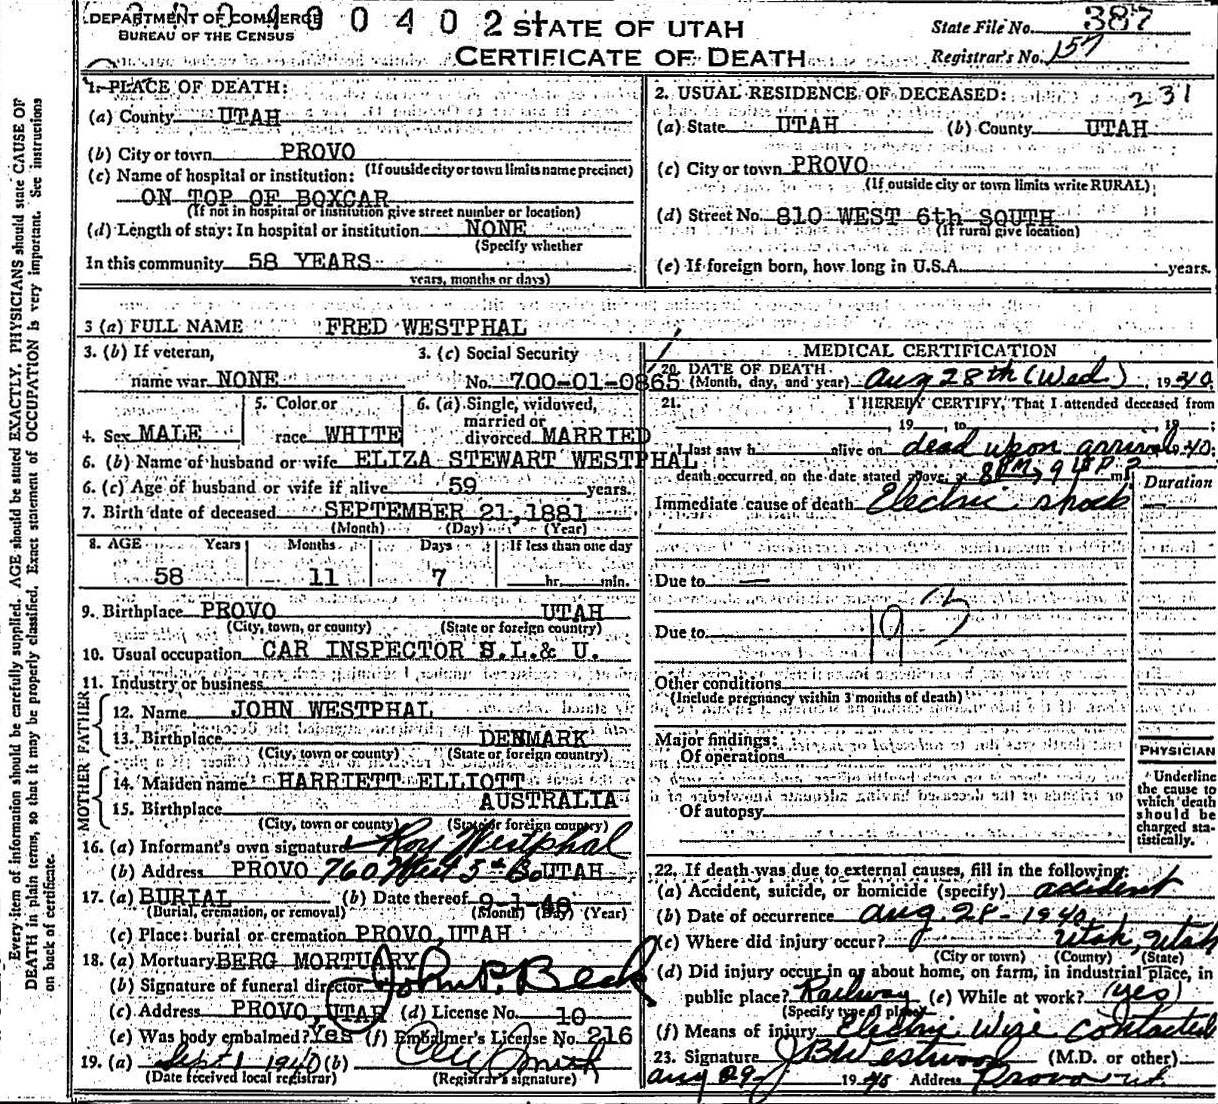 DEPARTMENT OF COMMERCE
BUREAU OF THE CENSUS
0 0 4 0 2
STATE OF UTAH
CERTIFICATE OF DEATH
State File No. 387
Registrar's No. 157
Every item of information should be carefully supplied. AGE should be stated EXACTLY, PHYSICIANS should state CAUSE OF
DEATH in plain terms, so that it may be properly classified. Exact statement of OCCUPATION is very important. See instructions
on back of certificate.
1. PLACE OF DEATH:
(a) County UTAH
(b) City or town PROVO
(If outside city or town limits name precinct)
(c) Name of hospital or institution:
ON TOP OF BOXCAR
(If not in hospital or institution give street number or location)
(d) Length of stay: In hospital or institution NONE
(Specify whether
In this community 58 YEARS
years, months or days)
2. USUAL RESIDENCE OF DECEASED: 231
(a) State UTAH (b) County UTAH
(c) City or town PROVO
(If outside city or town limits write RURAL)
(d) Street No. 810 WEST 6th SOUTH
(If rural give location)
(e) If foreign born, how long in U.S.A. years.
3 (a) FULL NAME FRED WESTPHAL
3. (b) If veteran,
name war NONE
3. (c) Social Security
No. 700-01-0865
4. Sex MALE
5. Color or
race WHITE
6. (a) Single, widowed,
married or
divorced MARRIED
6. (b) Name of husband or wife ELIZA STEWART WESTPHAL
6. (c) Age of husband or wife if alive 59 years.
7. Birth date of deceased SEPTEMBER 21, 1881
(Month) (Day) (Year)
8. AGE Years Months Days If less than one day
58 11 7 hr. min.
9. Birthplace PROVO UTAH
(City, town, or county) (State or foreign country)
10. Usual occupation CAR INSPECTOR S.L.& U.
11. Industry or business
FATHER
12. Name JOHN WESTPHAL
13. Birthplace DENMARK
(City, town or county) (State or foreign country)
MOTHER
14. Maiden name HARRIETT ELLIOTT
15. Birthplace AUSTRALIA
(City, town or county) (State or foreign country)
16. (a) Informant's own signature Roy Westphal
(b) Address PROVO 760 West 5th So UTAH
17. (a) BURIAL (b) Date thereof 9-1-40
(Burial, cremation, or removal) (Month) (Day) (Year)
(c) Place: burial or cremation PROVO, UTAH
18. (a) Mortuary BERG MORTUARY
(b) Signature of funeral director John P. Beck
(c) Address PROVO, UTAH (d) License No. 10
(e) Was body embalmed? Yes (f) Embalmer's License No. 216
19. (a) Sept 1 1940 (b) Smith
(Date received local registrar) (Registrar's signature)
MEDICAL CERTIFICATION
20. DATE OF DEATH
(Month, day, and year) Aug 28th (Wed.), 1940
21. I HEREBY CERTIFY, That I attended deceased from
, 19 , to , 19 ;
I last saw h alive on dead upon arrival, 40.
death occurred on the date stated above, at 8 PM, 9 m.
Immediate cause of death Electric shock
Duration
Due to —
Due to
193
Other conditions
(Include pregnancy within 3 months of death)
Major findings:
Of operations
Of autopsy
PHYSICIAN
Underline
the cause to
which death
should be
charged sta-
tistically.
22. If death was due to external causes, fill in the following:
(a) Accident, suicide, or homicide (specify) accident
(b) Date of occurrence Aug. 28 - 1940
(c) Where did injury occur? Utah, Utah
(City or town) (County) (State)
(d) Did injury occur in or about home, on farm, in industrial place, in
public place? Railway (e) While at work? (yes)
(Specify type of place)
(f) Means of injury Electric wire contacted
23. Signature J B Westwood (M.D. or other)
Aug 29 1940 Address Provo Ut.